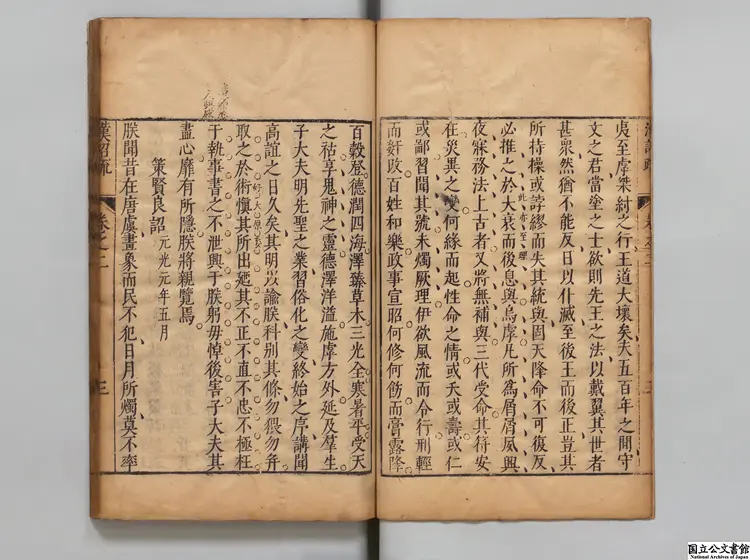 夷至虖桀紂之行王道大壞矣夫五百年之間守
文之君當塗之士欲則先王之法以戴翼其世者
甚衆然猶不能反日以仆滅至後王而後正豈其
所持操或誖繆而失其統與固天降命不可復反
必推之於大衰而後息與烏虖凡所為屑屑夙興
此亦至理
夜寐務法上古者又將無補與三代受命其符安
在災異之變何緣而起性命之情或夭或壽或仁
或鄙習聞其號未燭厥理伊欲風流而令行刑輕
而奸改百姓和樂政事宣昭何修何飭而膏露降
百穀登德潤四海澤臻草木三光全寒暑平受天
之祜享鬼神之靈德澤洋溢施虖方外延及羣生
子大夫明先聖之業習俗化之變終始之序講聞
高誼之日久矣其明以諭朕科別其條勿猥勿幷
取之於術愼其所出廼其不正不直不忠不極枉
于執事書之不泄興于朕躬毋悼後害子大夫其
盡心靡有所隱朕將親覽焉
策賢良詔 元光元年五月
朕聞昔在唐虞畫象而民不犯日月所燭莫不率
漢詔疏 卷之二 三
国立公文書館
National Archives of Japan